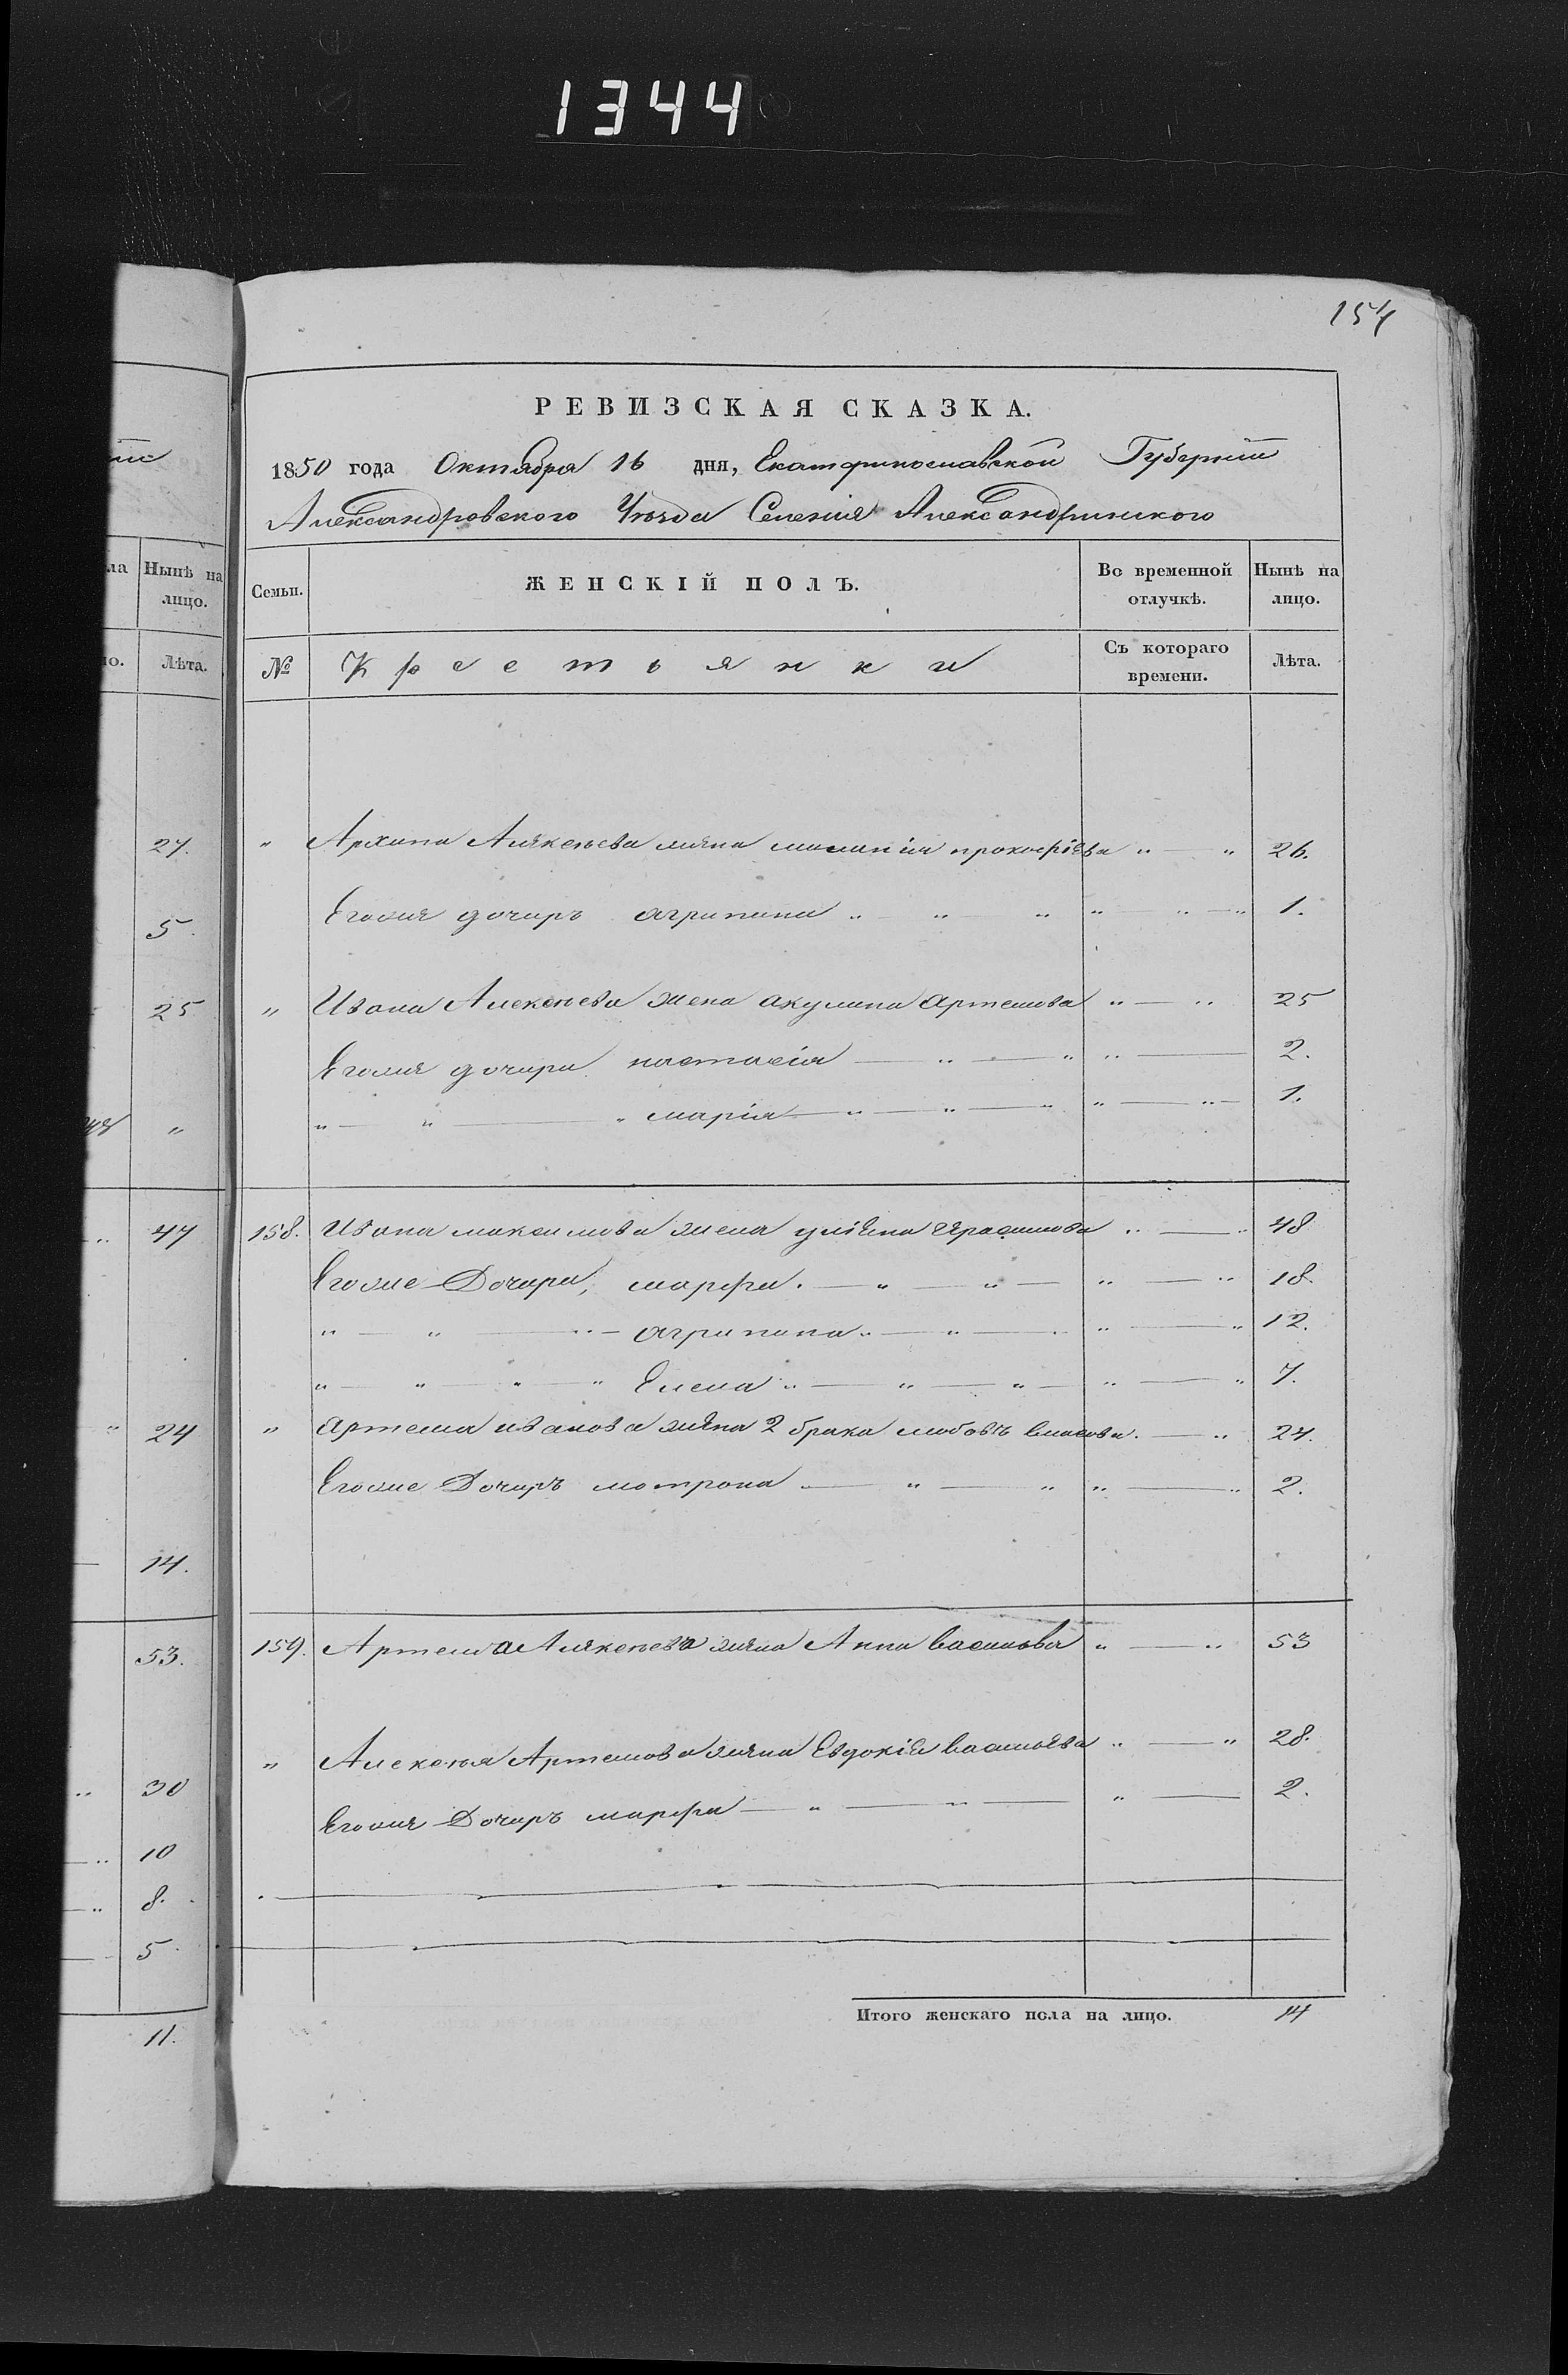 1344
154
РЕВИЗСКАЯ СКАЗКА.
1850 года Октября 16 дня, Екатеринославской Губернии
Александровского Уѣзда Селения Александринского
Семьи. ЖЕНСКІЙ ПОЛЪ. Во временной отлучкѣ. Нынѣ на лицо.
№ Крестьянки Съ котораго времени. Лѣта.
" Архипа Алексѣева жена маланія прокофіева " — " 26.
Егоже дочирь агрипина " " " " " — " 1.
" Ивана Алексѣева жена акулина Артемова " — " 25
Егоже дочири настасія — " — " " — 2.
" — " — " марія — " — " — " " — " — 1.
158. Ивана максимова жена уліяна Герасимова " — " 48
Егоже Дочири, марфа. — " — " — " — " 18.
" — " — " — агрипина " — " — " " — " 12.
" — " — " — " Елена " — " — " — " — " 7.
" Артема иванова жена 2 брака любовь власова. — " 24.
Егоже Дочирь мотрона — " — " " — " 2.
159. Артема Алексѣева жена Анна васильева " — " 53
" Алексѣя Артемова жена Евдокія васильева " — " 28.
Егоже Дочирь марфа — " — " — " — 2.
Итого женскаго пола на лицо. 14
ла Нынѣ на лицо.
но. Лѣта.
27.
5.
25
"
" 47
" 24
14.
53.
" 30
— " 10
— " 8.
— 5
11.